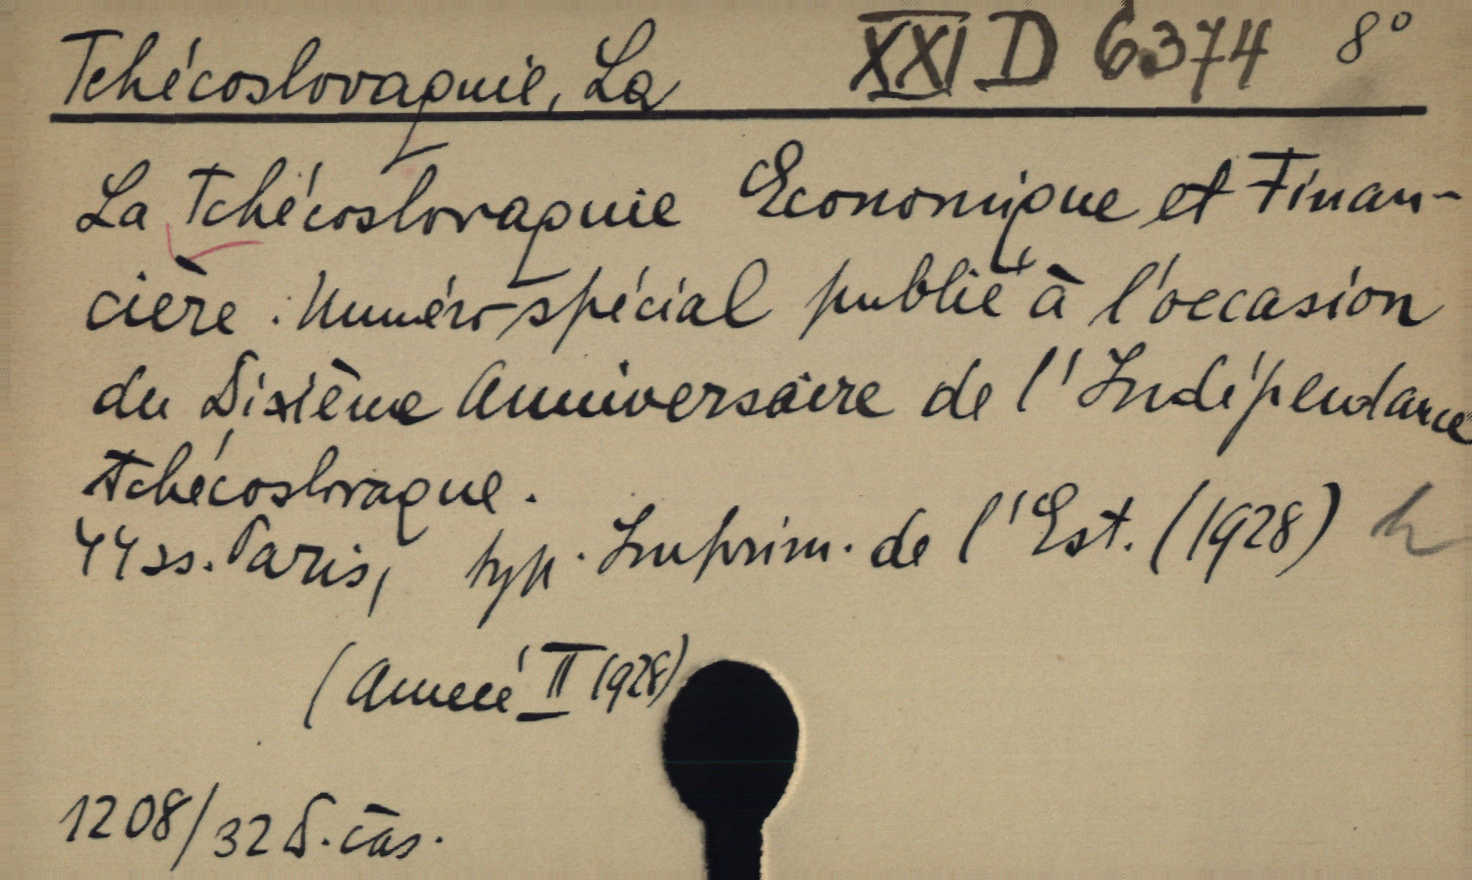 Tchécoslovaquie, La XXI D 6374 8°
La Tchécoslovaquie Economique et Finan-
cière. Numéro spécial publié à l'occasion
du Dixième Anniversaire de l'Indépendance
tchécoslovaque.
44 ss. Paris, typ. Imprim. de l'Est. (1928)
(Anneé II 1928)
1208/32 D. čas.